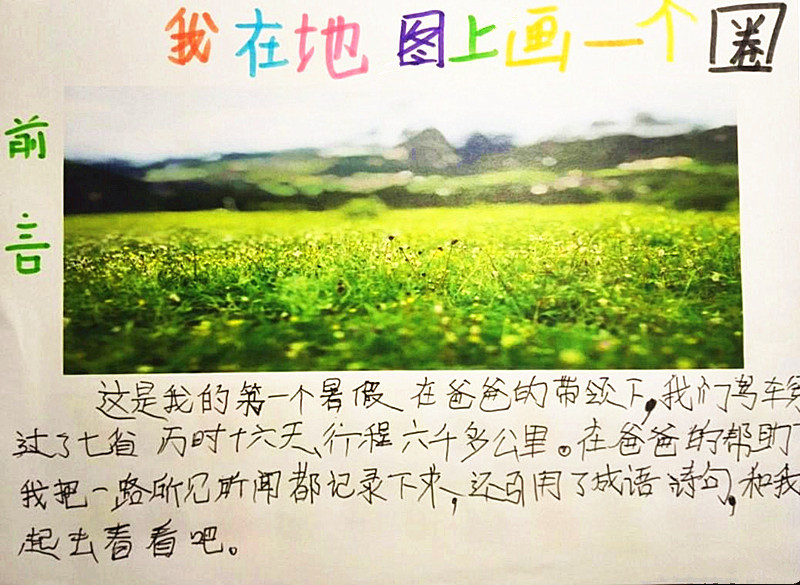 我在地图上画一个圈
前言
这是我的第一个暑假 在爸爸的带领下,我们驾车穿
过了七省 历时十六天、行程六千多公里。在爸爸的帮助下
我把一路所见所闻都记录下来,还引用了成语 诗句,和我
起去看看吧。